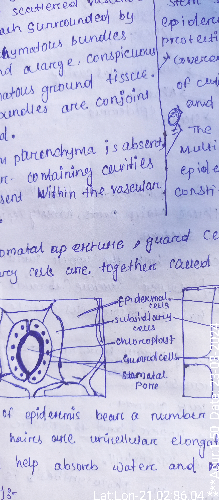 scattered
each surrounded by
chymatous bundles
nd a large, conspicuous
natous ground tissue.
bundles are conjoins
d.
m parenchyma is absent,
er- containing cavities
sent within the vascular
stem
epider
protecti
covere
of cuti
and
The
multi
epide
consti
omatal aperture, guard ce
ary cells are together called
Epidermal cells
subsidiary cells
chloroplast
Guard cells
stomatal pore
of epidermis bear a number
hairs are unicellular elongat
help absorb water and
Lat Lon-21.02.86.04